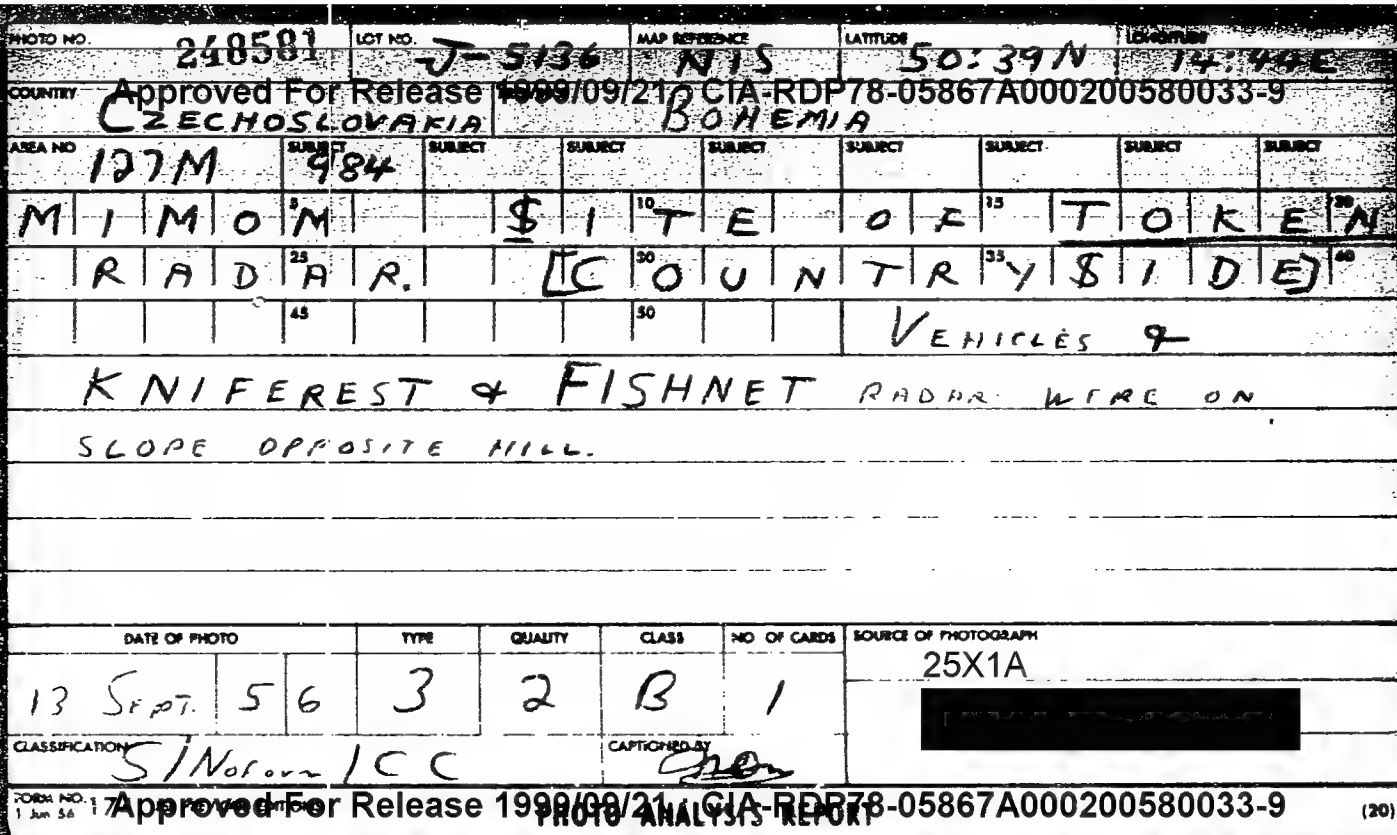 PHOTO NO. 248581 LOT NO. J-5136 MAP REFERENCE NIS LATITUDE 50:39N LONGITUDE 14:44E
COUNTRY Approved For Release 1999/09/21 : CIA-RDP78-05867A000200580033-9
CZECHOSLOVAKIA BOHEMIA
AREA NO 127M SUBJECT 984 SUBJECT SUBJECT SUBJECT SUBJECT SUBJECT SUBJECT SUBJECT
MIMOM 5 $ITE 10 OF 15 TOKEN 20
RADAR. 25 [COUNTRY$IDE] 30 35 40
45 50 VEHICLES &
KNIFEREST & FISHNET RADAR WERE ON
SLOPE OPPOSITE HILL.
DATE OF PHOTO TYPE QUALITY CLASS NO OF CARDS SOURCE OF PHOTOGRAPH
25X1A
13 SEPT. 56 3 2 B 1
CLASSIFICATION S/Noforn/CC CAPTIONED BY
FORM NO. 17 Approved For Release 1999/09/21 : CIA-RDP78-05867A000200580033-9
1 Jun 56 PHOTO ANALYSIS REPORT (20)